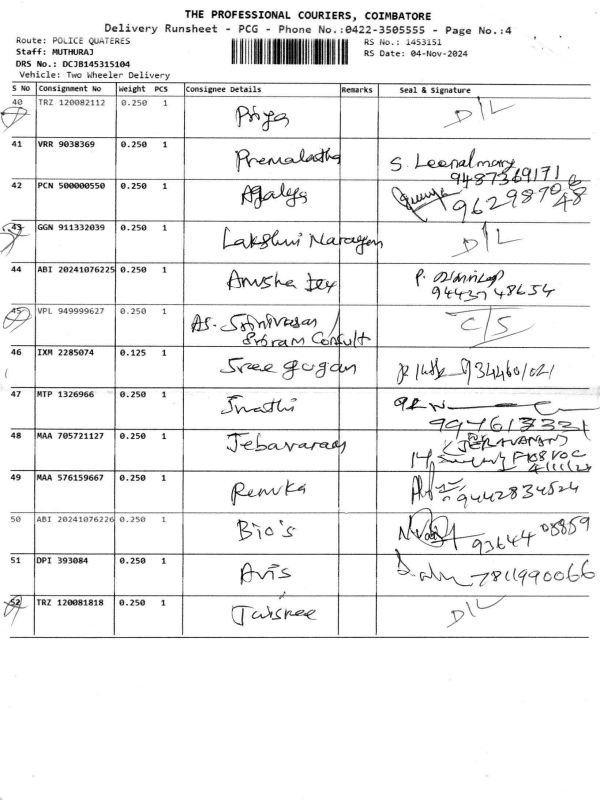 THE PROFESSIONAL COURIERS, COIMBATORE
Delivery Runsheet - PCG - Phone No.:0422-3505555 - Page No.:4
Route: POLICE QUATERES
RS No.: 1453151
Staff: MUTHURAJ
RS Date: 04-Nov-2024
DRS No.: DCJB145315104
Vehicle: Two Wheeler Delivery
S No Consignment No Weight PCS Consignee Details Remarks Seal & Signature
40 TRZ 120082112 0.250 1 Priya D/L
41 VRR 9038369 0.250 1 Premalatha S. Leenalmary
9487369171
42 PCN 500000550 0.250 1
43 GGN 911332039 0.250 1 Lakshmi Narayan D/L
44 ABI 20241076225 0.250 1 Anusha Dey P.
9443748654
45 VPL 949999627 0.250 1 As. Srinivasan / C/S
Sriram Consult
46 IXM 2285074 0.125 1 Sree gogan
47 MTP 1326966 0.250 1 Swathi
48 MAA 705721127 0.250 1 Jebavaraj
49 MAA 576159667 0.250 1 Renuka 9442834524
50 ABI 20241076226 0.250 1 Bio's 9364408859
51 DPI 393084 0.250 1 Avis 7811990066
52 TRZ 120081818 0.250 1 Jaisree D/L